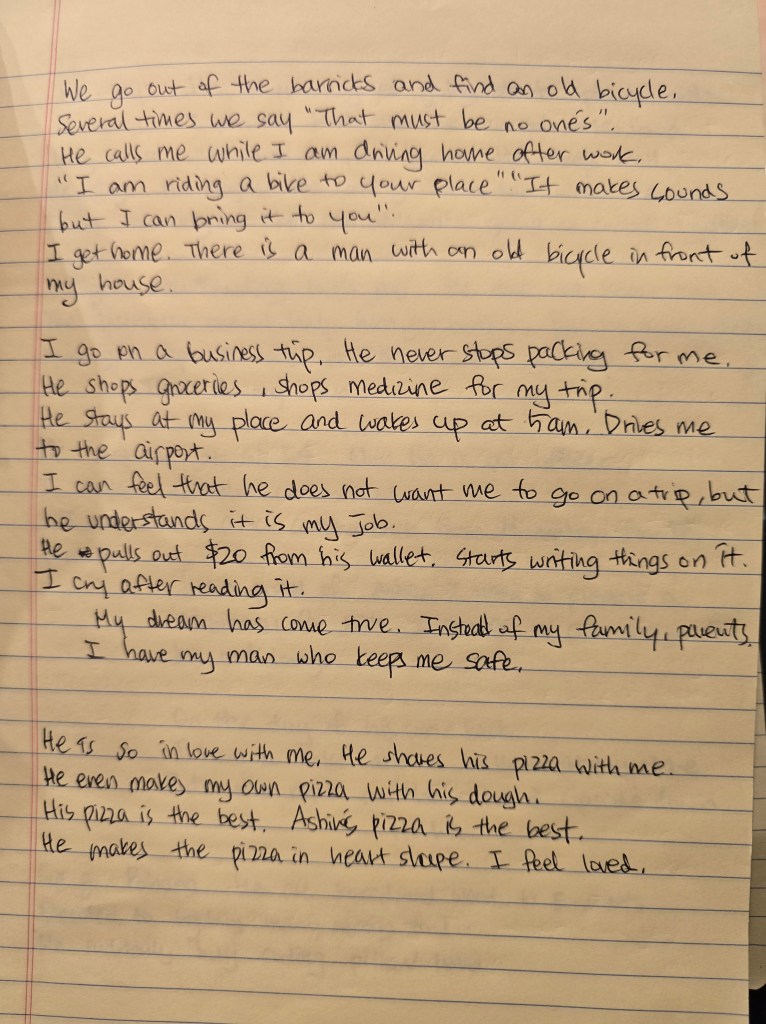 We go out of the barricks and find an old bicycle.
Several times we say "That must be no one's".
He calls me while I am driving home after work.
"I am riding a bike to your place" "It makes sounds
but I can bring it to you".
I get home. There is a man with an old bicycle in front of
my house.
I go on a business trip. He never stops packing for me.
He shops groceries, shops medizine for my trip.
He stays at my place and wakes up at 5am. Drives me
to the airport.
I can feel that he does not want me to go on a trip, but
he understands it is my job.
He pulls out $20 from his wallet. Starts writing things on it.
I cry after reading it.
My dream has come true. Instead of my family, parents,
I have my man who keeps me safe.
He is so in love with me. He shares his pizza with me.
He even makes my own pizza with his dough.
His pizza is the best. Ashin's pizza is the best.
He makes the pizza in heart shape. I feel loved.